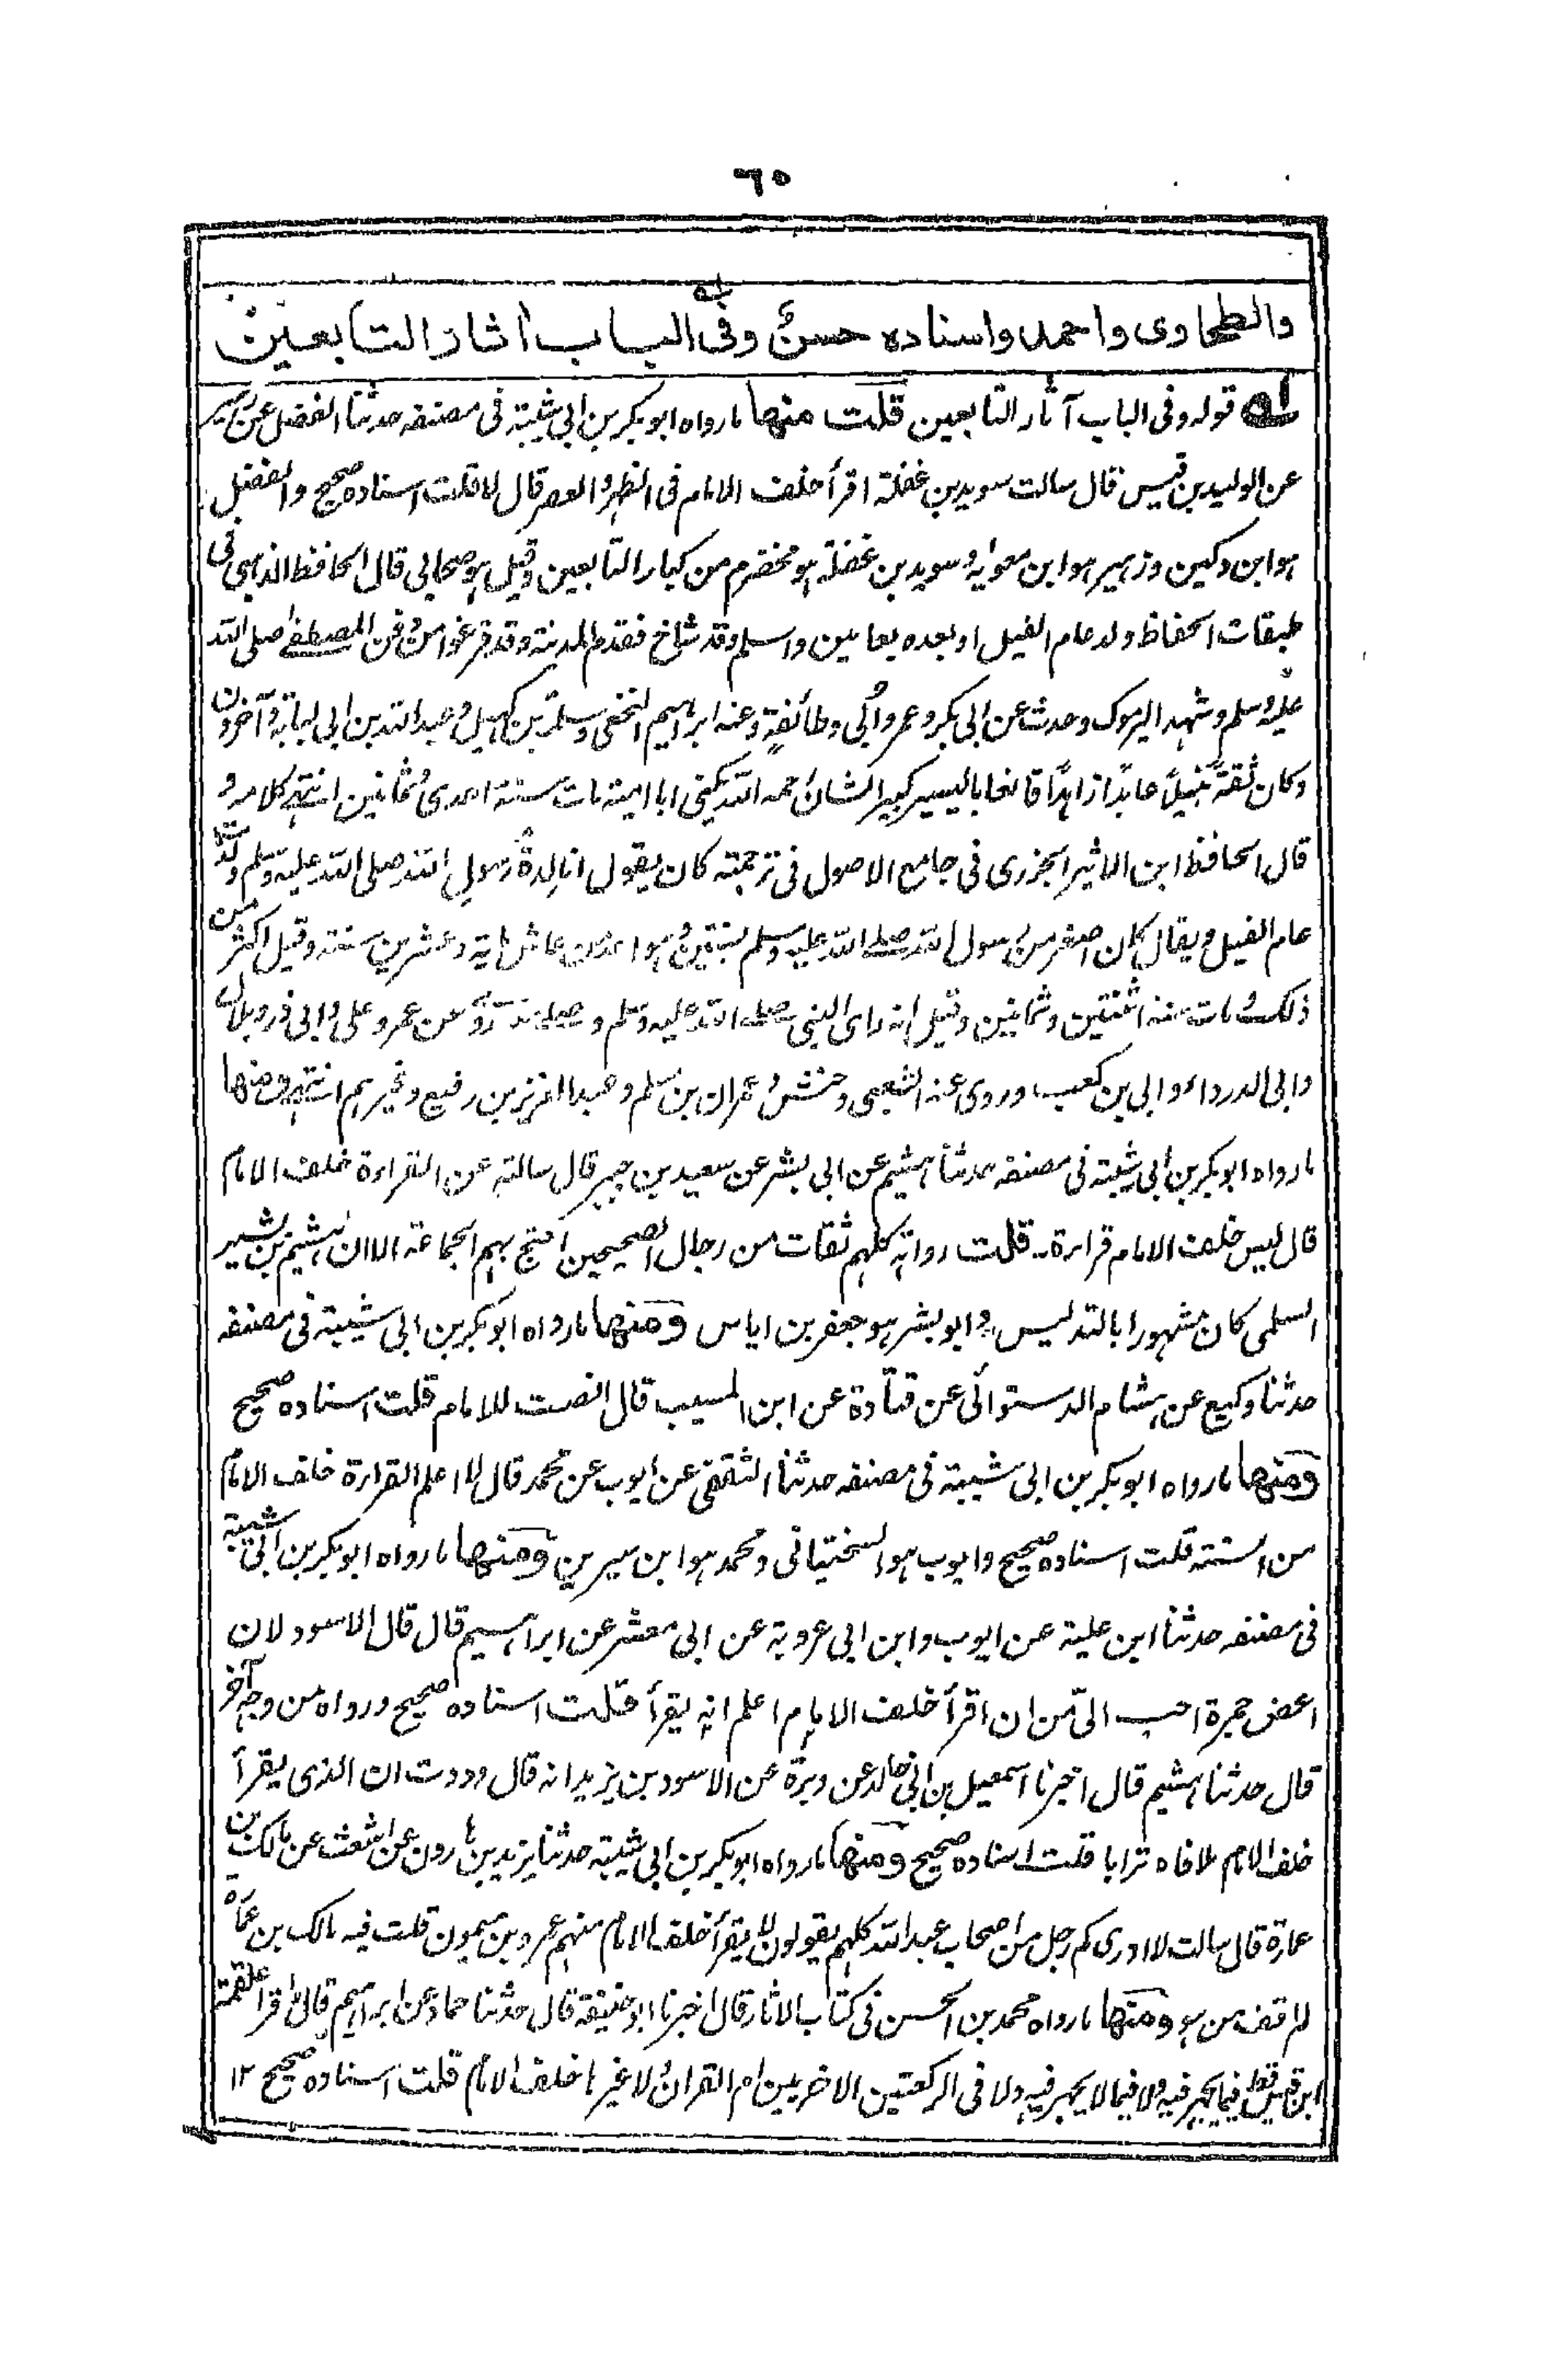 ٦٥
والطحاوى واحمد واسناده حسن وفى الباب اثار التابعين
له قوله وفى الباب آثار التابعين قلت منها ما رواه ابو بكر بن ابى شيبة فى مصنفه حدثنا الفضل عن زهير
عن الوليد بن قيس قال سالت سويد بن غفلة اقرأ خلف الامام فى الظهر والعصر قال لا قلت اسناده صحيح والفضل
هو ابن دكين وزهير هو ابن معوية وسويد بن غفلة هو مخضرم من كبار التابعين وقيل هو صحابى قال الحافظ الذهبى فى
طبقات الحفاظ ولد عام الفيل او بعده بعامين واسلم وقد شاخ فقدم المدينة وقد فرغوا من دفن المصطفى صلى الله
عليه وسلم وشهد اليرموك وحدث عن ابى بكر وعمر وابى وطائفة وعنه ابراهيم النخعى وسلمة بن كهيل وعبد الله بن ابى لبابة وآخرون
وكان ثقة نبيلا عابدا زاهدا قانعا باليسير كبير الشان رحمه الله يكنى ابا امية مات سنة احدى وثمانين انتهى كلامه و
قال الحافظ ابن الاثير الجزرى فى جامع الاصول فى ترجمته كان يقول انا لدة رسول الله صلى الله عليه وسلم ولدت
عام الفيل ويقال كان اصغر من رسول الله صلى الله عليه وسلم بسنتين وهو احد من عاش مائة وعشرين سنة وقيل اكثر من
ذلك ومات سنة اثنتين وثمانين وقيل انه راى النبى صلى الله عليه وسلم وصلى معه روى عن عمر وعلى وابى ذر وبلال
وابى الدرداء وابى بن كعب وروى عنه الشعبى وخنش وعمران بن مسلم وعبد العزيز بن رفيع وغيرهم انتهى ومنها
ما رواه ابو بكر بن ابى شيبة فى مصنفه حدثنا هشيم عن ابى بشر عن سعيد بن جبير قال سالته عن القراءة خلف الامام
قال ليس خلف الامام قراءة - قلت رواته كلهم ثقات من رجال الصحيحين احتج بهم الجماعة الا ان هشيم بن بشير
السلمى كان مشهورا بالتدليس وابو بشر هو جعفر بن اياس ومنها ما رواه ابو بكر بن ابى شيبة فى مصنفه
حدثنا وكيع عن هشام الدستوائى عن قتادة عن ابن المسيب قال انصت للامام قلت اسناده صحيح
ومنها ما رواه ابو بكر بن ابى شيبة فى مصنفه حدثنا الثقفى عن ايوب عن محمد قال لا اعلم القراءة خلف الامام
من السنة قلت اسناده صحيح وايوب هو السختيانى ومحمد هو ابن سيرين ومنها ما رواه ابو بكر بن ابى شيبة
فى مصنفه حدثنا ابن علية عن ايوب وابن ابى عروبة عن ابى معشر عن ابراهيم قال قال الاسود لان
اعض جمرة احب الى من ان اقرأ خلف الامام اعلم انه يقرأ قلت اسناده صحيح ورواه من وجه آخر
قال حدثنا هشيم قال اخبرنا اسمعيل بن ابى خالد عن وبرة عن الاسود بن يزيد انه قال وددت ان الذى يقرأ
خلف الامام ملا فاه ترابا قلت اسناده صحيح ومنها ما رواه ابو بكر بن ابى شيبة حدثنا يزيد بن هارون عن اشعث عن مالك بن
عمارة قال سالت لا ادرى كم رجل من اصحاب عبد الله كلهم يقولون لا يقرأ خلف الامام منهم عمرو بن ميمون قلت فيه مالك بن عمارة
لم اقف من هو ومنها ما رواه محمد بن الحسن فى كتاب الاثار قال اخبرنا ابو حنيفة قال حدثنا حماد عن ابراهيم قال ما قرأ علقمة
ابن قيس قط فيما يجهر فيه ولا فيما لا يجهر فيه ولا فى الركعتين الاخريين ام القران ولا غيرها خلف الامام قلت اسناده صحيح ١٢